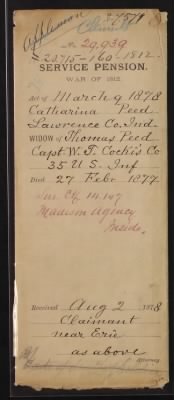 Appleman
37571
No. 29,939
22715-160-1812
SERVICE PENSION.
WAR OF 1812.
Act of March 9 1878
Catharina Peed
Lawrence Co. Ind.
WIDOW of Thomas Peed
Capt W. T. Cockr's Co
35 U.S. Inf
Died 27 Febr 1877
Sur. Ctf. 14.147
Madison Agency
Inside.
Received Aug 2 1878
Claimant
near Erie
as above
Attorney